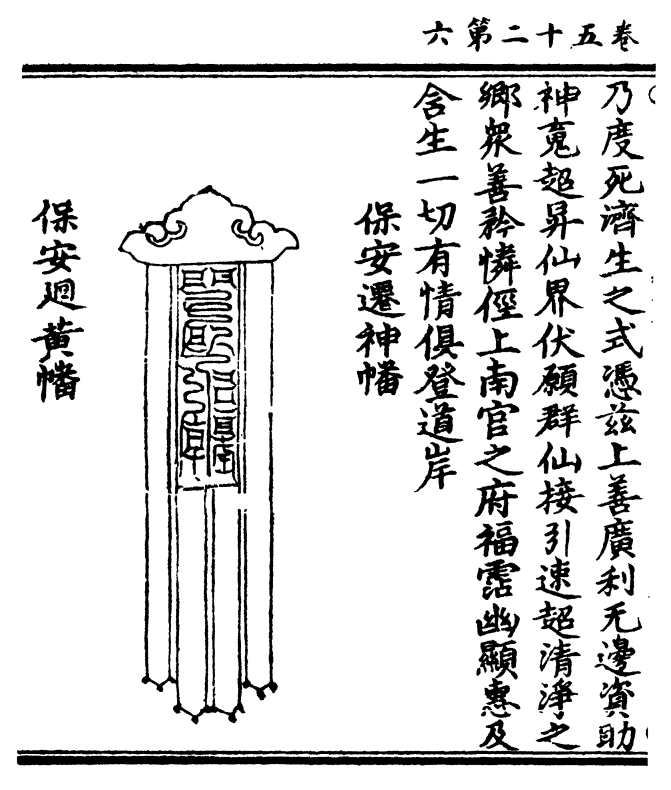 卷五十二第六
乃度死濟生之式憑茲上善廣利无邊資助
神䰟超昇仙界伏願群仙接引速超清淨之
鄉衆善矜憐徑上南宫之府福霑幽顯惠及
含生一切有情俱登道岸
保安遷神幡
保安迴黄幡